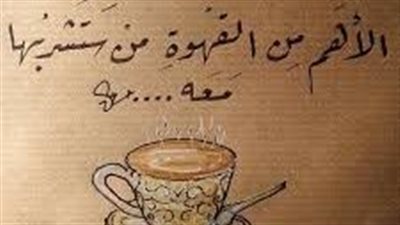 الأهَم مِن القَهْوةِ مَن سَتَشربُها
مَعَه ....